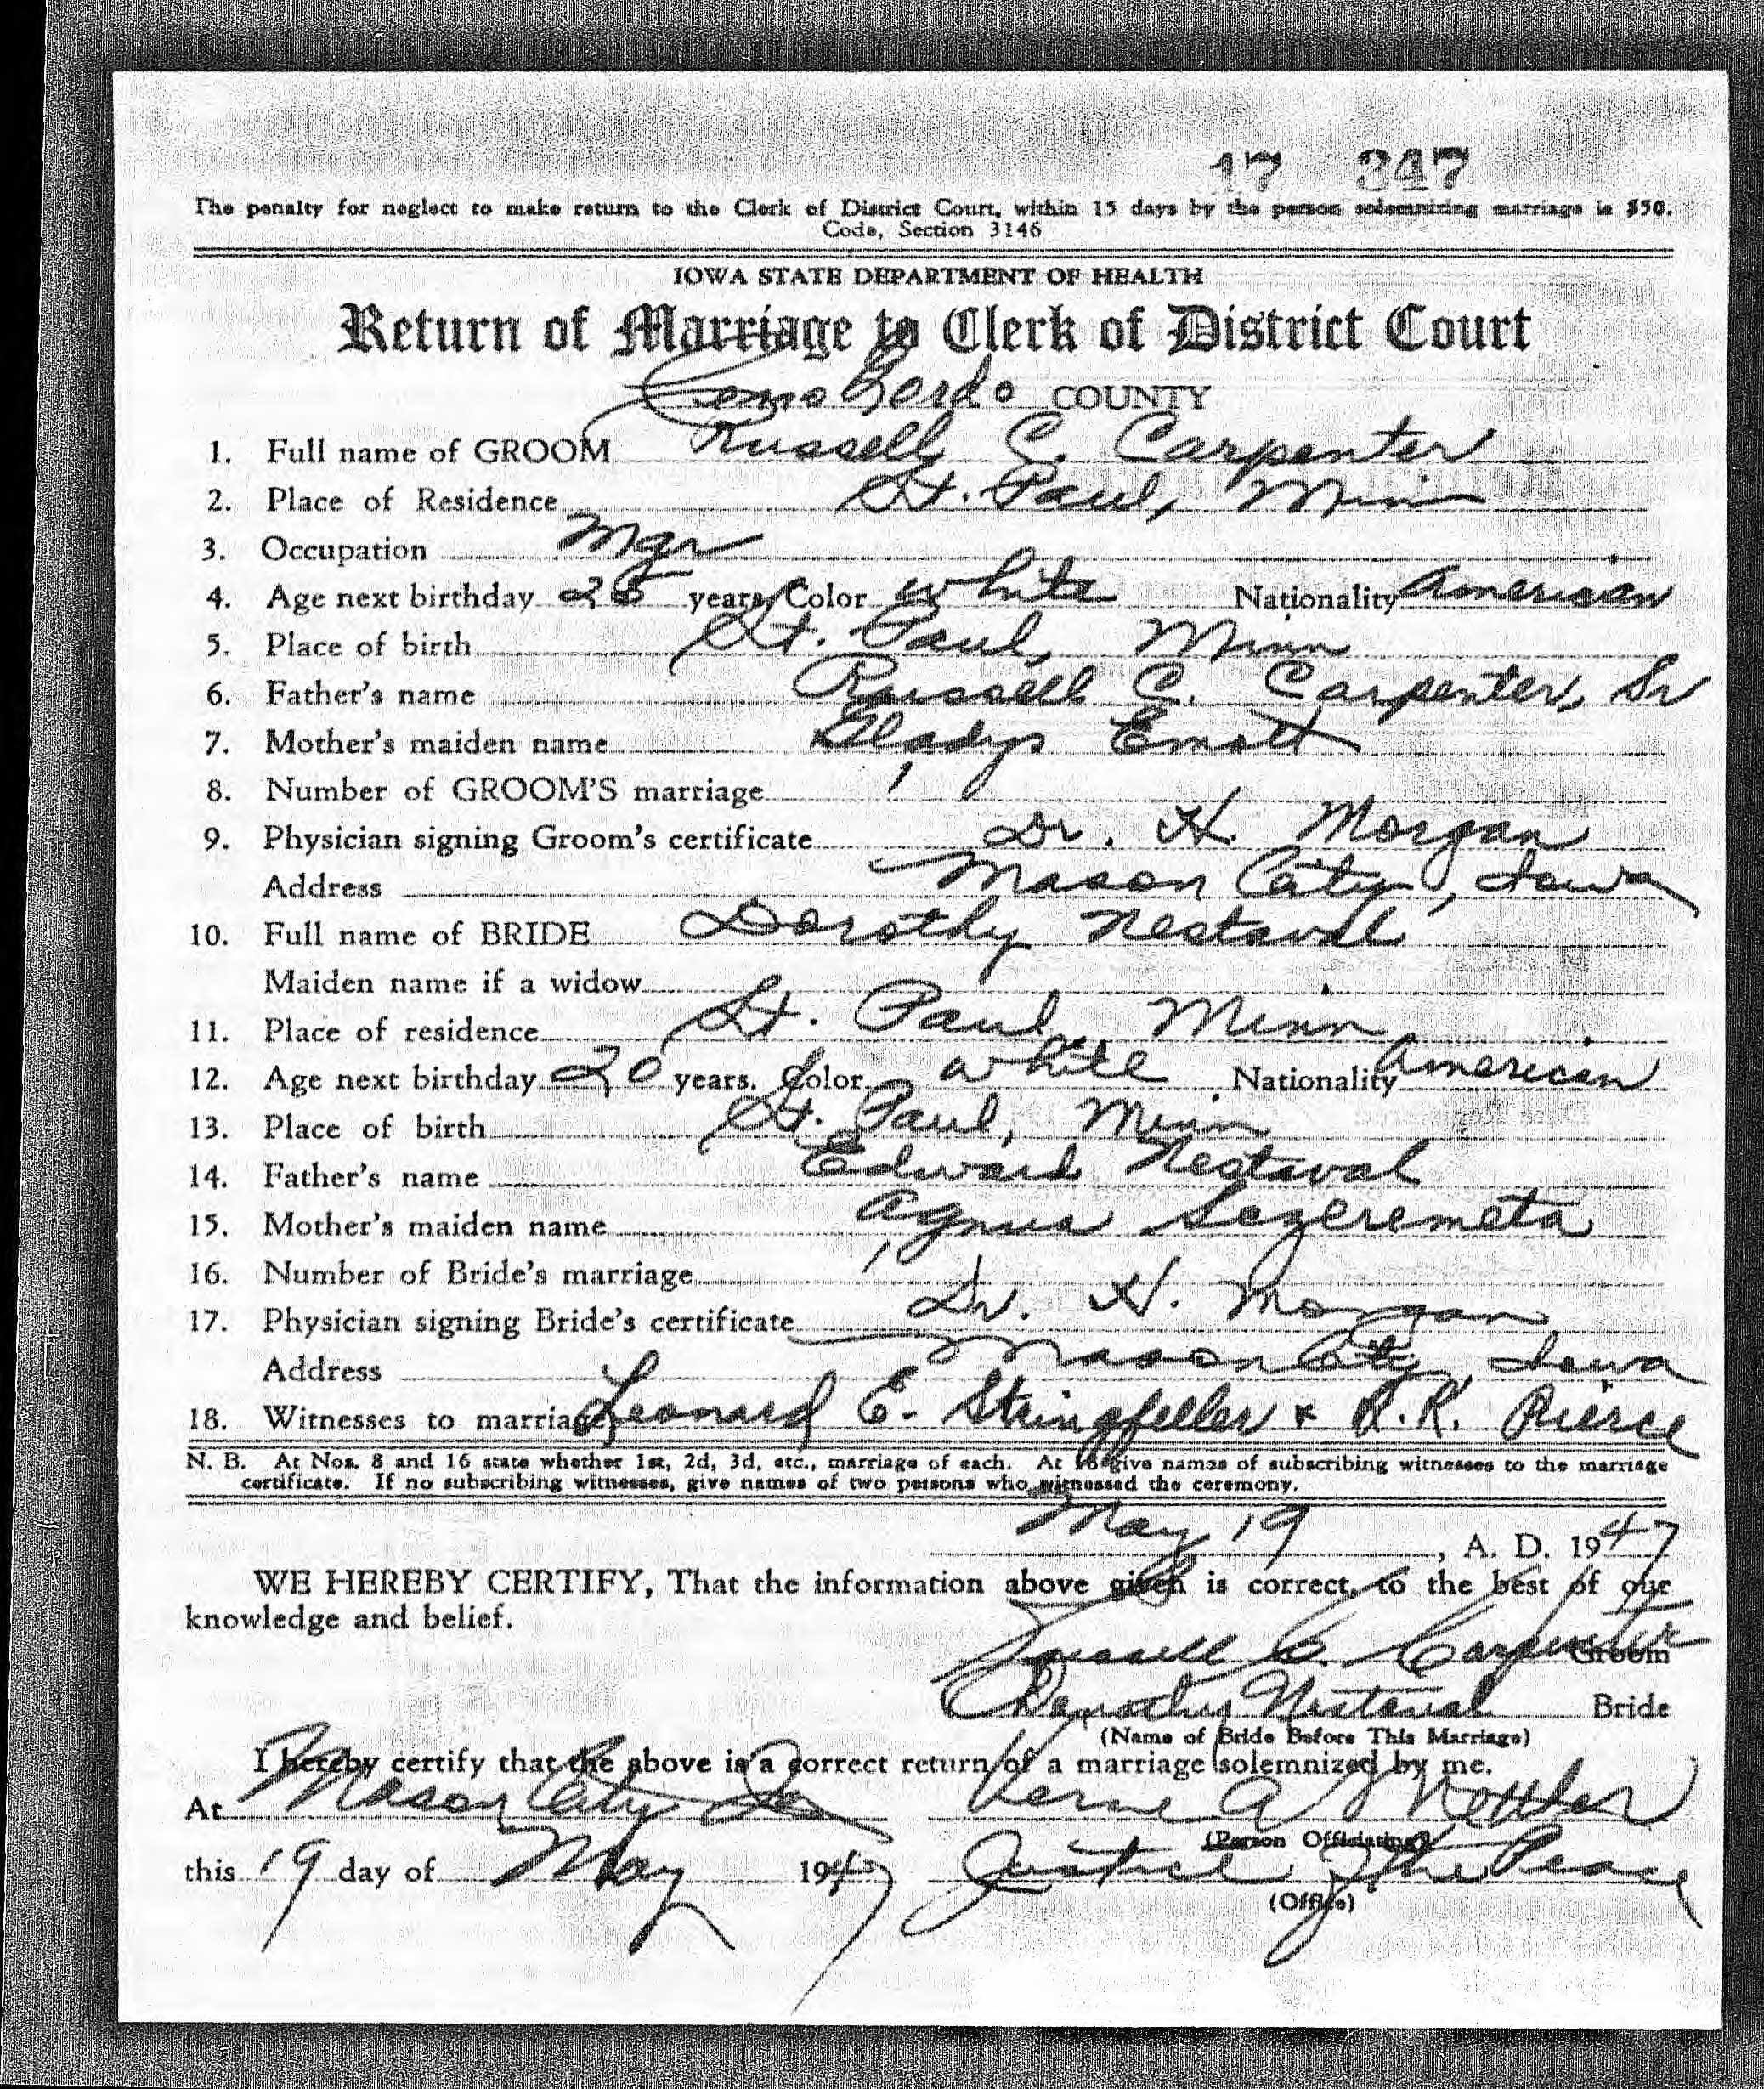 17 347
The penalty for neglect to make return to the Clerk of District Court, within 15 days by the person solemnizing marriage is $50.
Code, Section 3146
IOWA STATE DEPARTMENT OF HEALTH
Return of Marriage to Clerk of District Court
Cerro Gordo COUNTY
1. Full name of GROOM Russell C. Carpenter
2. Place of Residence St. Paul, Minn
3. Occupation Mgr
4. Age next birthday years, Color white Nationality American
5. Place of birth St. Paul, Minn
6. Father's name Russell C. Carpenter, Sr
7. Mother's maiden name Gladys Emott
8. Number of GROOM'S marriage 1
9. Physician signing Groom's certificate Dr. H. Morgan
Address Mason City, Iowa
10. Full name of BRIDE Dorothy Nestaval
Maiden name if a widow
11. Place of residence St. Paul, Minn
12. Age next birthday 20 years. Color white Nationality American
13. Place of birth St. Paul, Minn
14. Father's name Edward Nestaval
15. Mother's maiden name Agnus Sezeremeta
16. Number of Bride's marriage 1
17. Physician signing Bride's certificate Dr. H. Morgan
Address Mason City, Iowa
18. Witnesses to marriage Leonard E. Stringfeller & R.R. Pierce
N. B. At Nos. 8 and 16 state whether 1st, 2d, 3d, etc., marriage of each. At 18 give names of subscribing witnesses to the marriage
certificate. If no subscribing witnesses, give names of two persons who witnessed the ceremony.
May 19, A. D. 1947
WE HEREBY CERTIFY, That the information above given is correct, to the best of our
knowledge and belief.
Russell C. Carpenter Groom
Dorothy Nestaval Bride
(Name of Bride Before This Marriage)
I hereby certify that the above is a correct return of a marriage solemnized by me.
At Mason City Ia Verne A
(Person Officiating)
this 19 day of May 1947 Justice of the Peace
(Office)